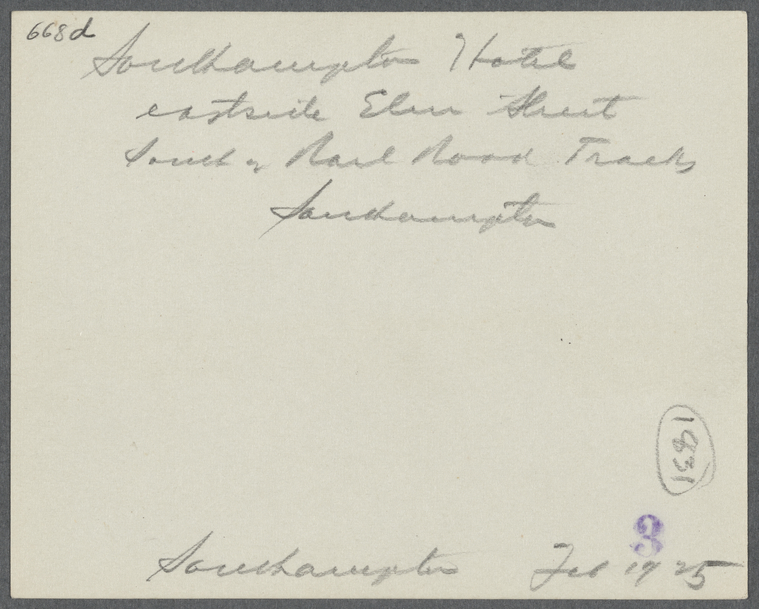 668d
Southampton Hotel
eastside Elm Street
South of Rail Road Tracks
Southampton
1831
3
Southampton Feb 19 25